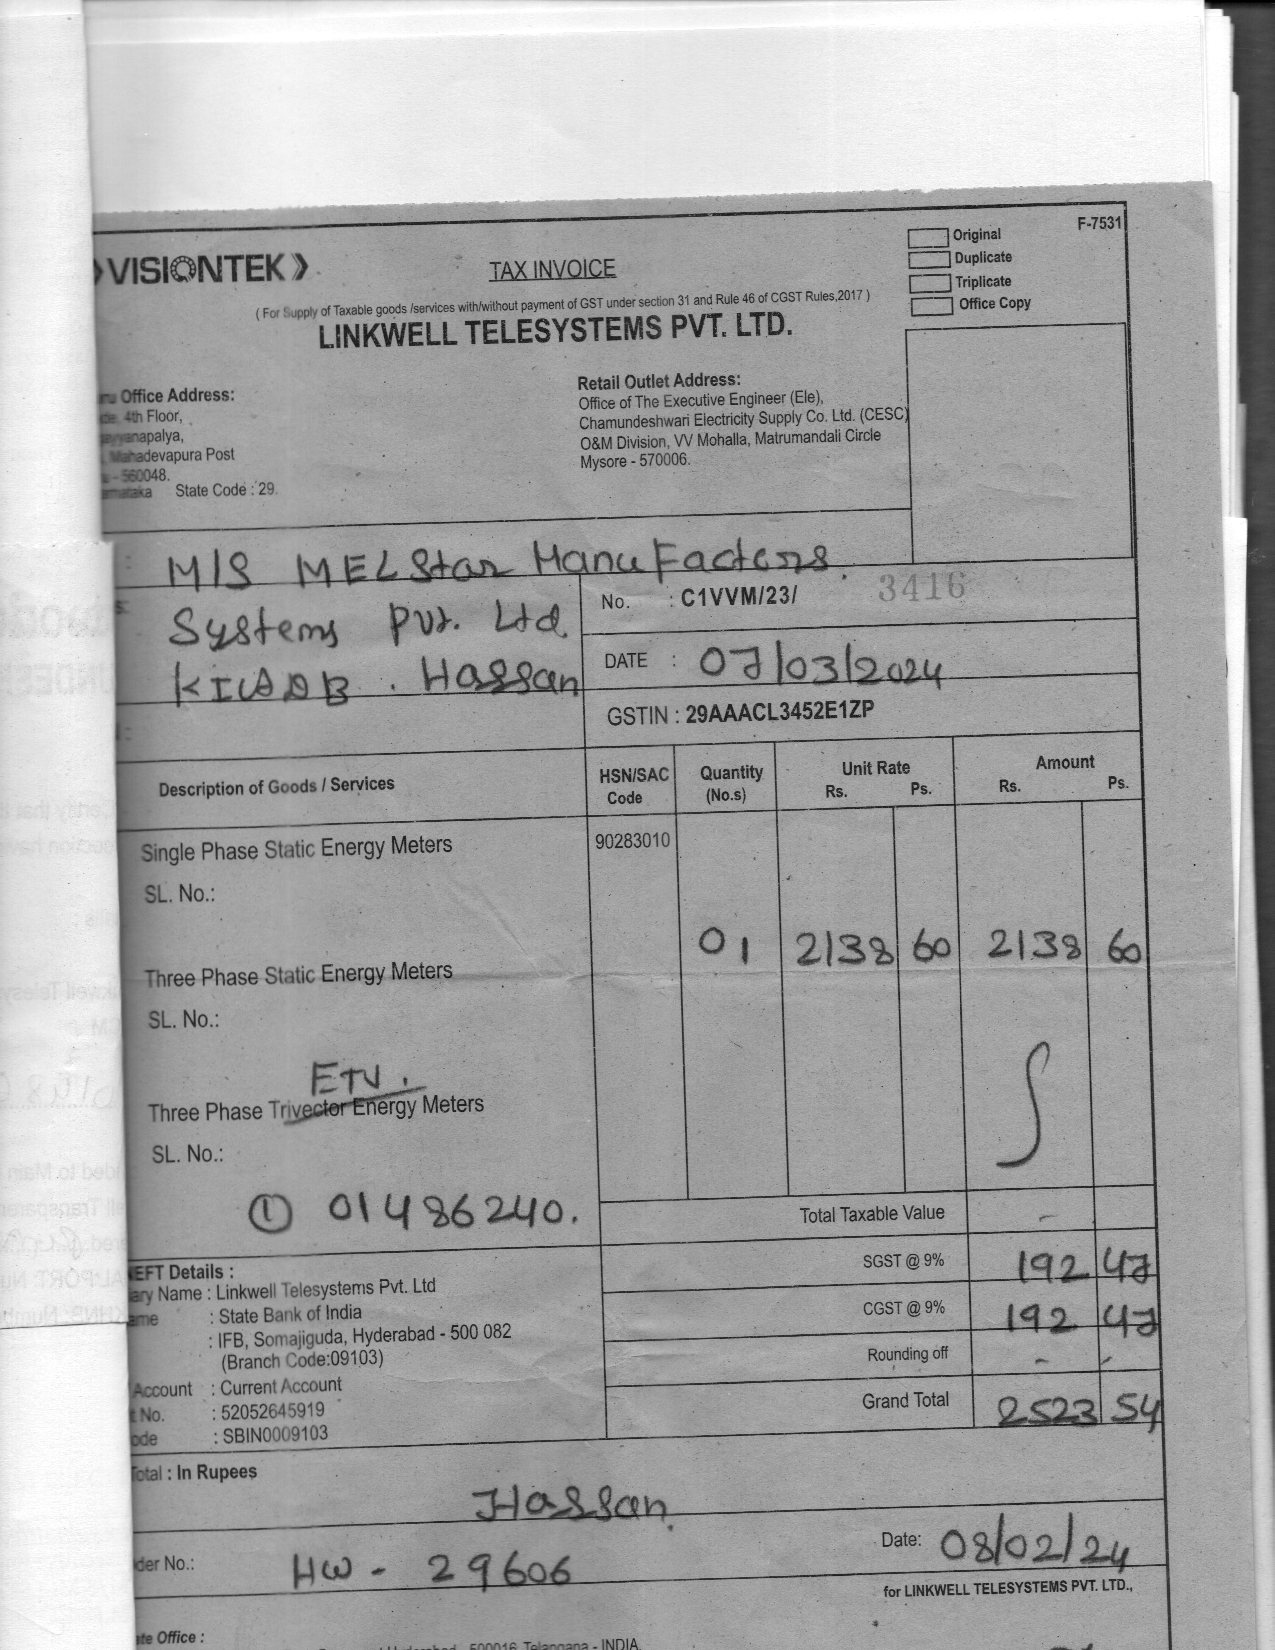 F-7531
Original
Duplicate
Triplicate
Office Copy
VISIONTEK
TAX INVOICE
( For Supply of Taxable goods /services with/without payment of GST under section 31 and Rule 46 of CGST Rules,2017 )
LINKWELL TELESYSTEMS PVT. LTD.
Office Address:
4th Floor,
Mahadevapura Post
- 560048.
State Code : 29.
Retail Outlet Address:
Office of The Executive Engineer (Ele),
Chamundeshwari Electricity Supply Co. Ltd. (CESC)
O&M Division, VV Mohalla, Matrumandali Circle
Mysore - 570006.
M/S MELStar Manufacters
Systems Pvt. Ltd.
KIADB . Hassan
No. : C1VVM/23/ 3416
DATE : 07/03/2024
GSTIN : 29AAACL3452E1ZP
Description of Goods / Services HSN/SAC Code Quantity (No.s) Unit Rate Rs. Ps. Amount Rs. Ps.
Single Phase Static Energy Meters 90283010
SL. No.:
01 2138 60 2138 60
Three Phase Static Energy Meters
SL. No.:
ETV.
Three Phase Trivector Energy Meters
SL. No.:
① 01486240.
Total Taxable Value -
SGST @ 9% 192 47
CGST @ 9% 192 47
Rounding off - -
Grand Total 2523 54
EFT Details :
ary Name : Linkwell Telesystems Pvt. Ltd
ame : State Bank of India
: IFB, Somajiguda, Hyderabad - 500 082
(Branch Code:09103)
Account : Current Account
t No. : 52052645919
ode : SBIN0009103
Total : In Rupees
Hassan.
der No.: HW - 29606
Date: 08/02/24
for LINKWELL TELESYSTEMS PVT. LTD.,
te Office :
Hyderabad - 500016 Telangana - INDIA.